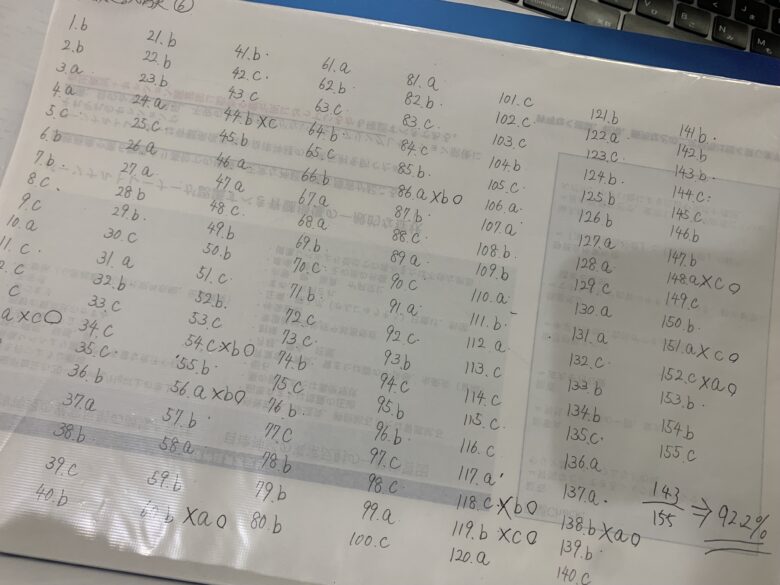 ⑥
1.b
2.b
3.a
4.a
5.c
6.b
7.b
8.c
9.c
10.a
11.c
2.c
c
a×c○
21.b
22.b
23.b
24.a
25.c
26.a
27.a
28.b
29.b
30.c
31.a
32.b
33.c
34.c
35.c
36.b
37.a
38.b
39.c
40.b
41.b
42.c
43.c
44.b×c
45.b
46.a
47.a
48.c
49.b
50.b
51.c
52.b
53.c
54.c×b○
55.b
56.a×b○
57.b
58.a
59.b
b×a○
61.a
62.b
63.c
64.b
65.c
66.b
67.a
68.a
69.b
70.c
71.b
72.c
73.c
74.b
75.c
76.b
77.c
78.b
79.b
80.b
81.a
82.b
83.c
84.c
85.b
86.a×b○
87.b
88.c
89.a
90.c
91.a
92.c
93.b
94.c
95.b
96.b
97.c
98.c
99.a
100.c
101.c
102.c
103.c
104.b
105.c
106.a
107.a
108.b
109.b
110.a
111.b
112.a
113.c
114.c
115.c
116.c
117.a
118.c×b○
119.b×c○
120.a
121.b
122.a
123.c
124.b
125.b
126.b
127.a
128.a
129.c
130.a
131.a
132.c
133.b
134.b
135.c
136.a
137.a
138.b×a○
139.b
140.c
141.b
142.b
143.b
144.c
145.c
146.b
147.b
148.a×c○
149.c
150.b
151.a×c○
152.c×a○
153.b
154.b
155.c
143
155
⇒92.2%